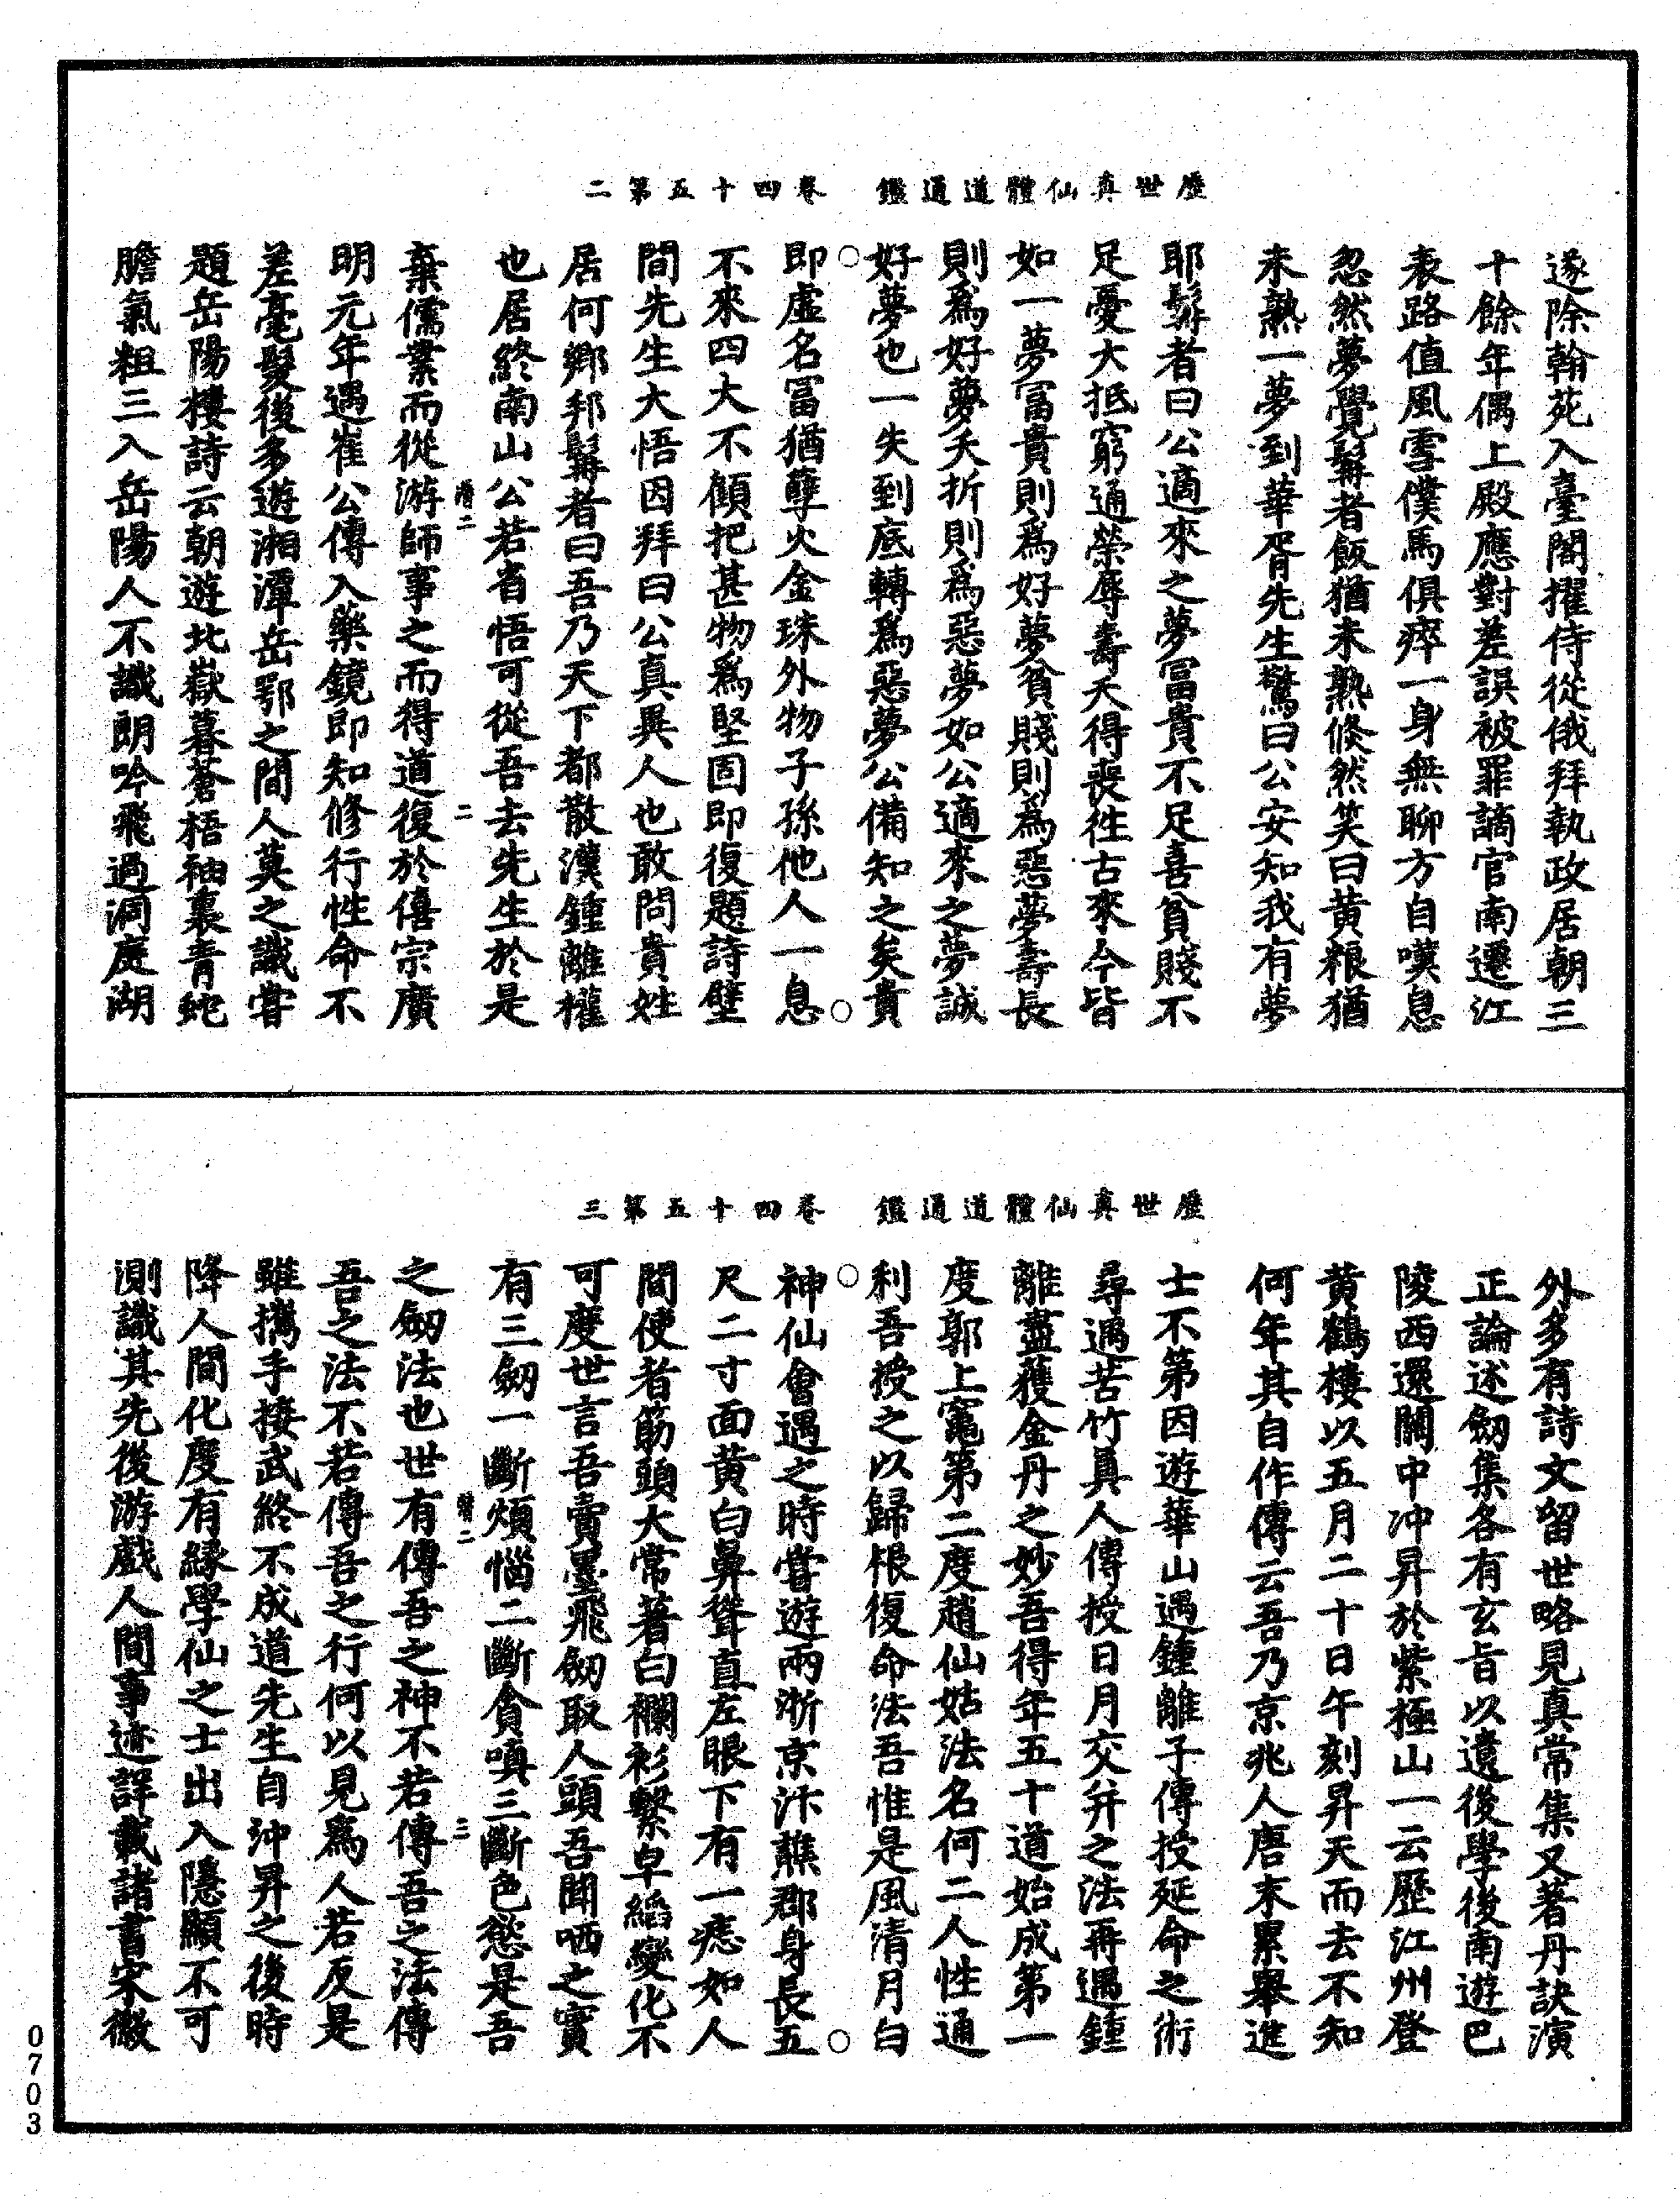 歷世真仙體道通鑑　卷四十五第二
遂除翰苑入臺閣擢侍從俄拜執政居朝三
十餘年偶上殿應對差誤被罪謫官南遷江
表路值風雪僕馬俱瘁一身無聊方自嘆息
忽然夢覺髯者飯猶未熟倏然笑曰黄粮猶
未熟一夢到華胥先生驚曰公安知我有夢
耶髯者曰公適來之夢冨貴不足喜貧賤不
足憂大抵窮通榮辱壽夭得喪徃古來今皆
如一夢冨貴則爲好夢貧賤則爲惡夢壽長
則爲好夢夭折則爲惡夢如公適來之夢誠
好夢也一失到底轉爲惡夢公備知之矣貴
即虛名冨猶孽火金珠外物子孫他人一息
不來四大不顧把甚物爲堅固即復題詩壁
間先生大悟因拜曰公真異人也敢問貴姓
居何鄉邦髯者曰吾乃天下都散漢鍾離權
也居終南山公若省悟可從吾去先生於是
棄儒業而從游師事之而得道復於僖宗廣
明元年遇崔公傳入藥鏡即知修行性命不
差毫髮後多遊湘潭岳鄂之間人莫之識嘗
題岳陽樓詩云朝遊北嶽暮蒼梧袖裏青蛇
膽氣粗三入岳陽人不識朗吟飛過洞庭湖
歷世真仙體道通鑑　卷四十五第三
外多有詩文留世略見真常集又著丹訣演
正論述劒集各有玄旨以遺後學後南遊巴
陵西還關中冲昇於紫極山一云歷江州登
黄鶴樓以五月二十日午刻昇天而去不知
何年其自作傳云吾乃京兆人唐末累舉進
士不第因遊華山遇鍾離子傳授延命之術
尋遇苦竹真人傳授日月交并之法再遇鍾
離盡獲金丹之妙吾得年五十道始成第一
度郭上竈第二度趙仙姑法名何二人性通
利吾授之以歸根復命法吾惟是風清月白
神仙會遇之時嘗遊兩浙京汴譙郡身長五
尺二寸面黄白鼻聳直左眼下有一痣如人
間使者筯頭大常著白襴衫繫皁絛變化不
可度世言吾賣墨飛劒取人頭吾聞哂之實
有三劒一斷煩惱二斷貪嗔三斷色慾是吾
之劒法也世有傳吾之神不若傳吾之法傳
吾之法不若傳吾之行何以見爲人若反是
雖攜手接武終不成道先生自沖昇之後時
降人間化度有緣學仙之士出入隱顯不可
測識其先後游戲人間事迹詳載諸書宋徽
0703